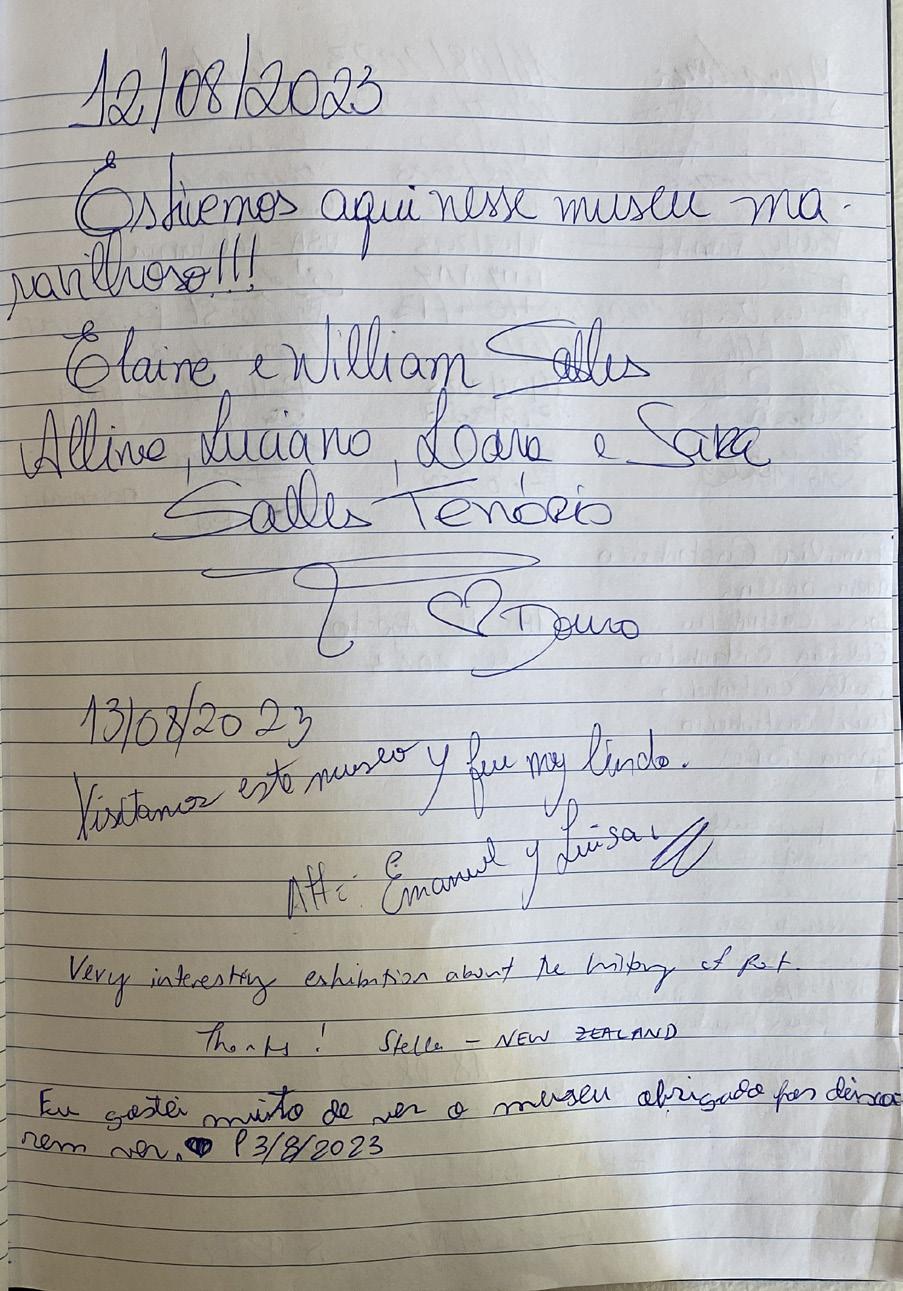 12/08/2023
Estivemos aqui nesse museu ma-
ravilhoso!!!
Elaine e William Salles
Alline, Luciano, Loara e Sara
Salles Tenório
Douro
13/08/2023
Visitamos este museo y fue muy lindo.
Att: Emanuel y Luisa
Very interesting exhibition about the history of Port.
Thanks! Stella - NEW ZEALAND
Eu gostei muito de ver o museu obrigado por deixa
rem ver. 13/8/2023